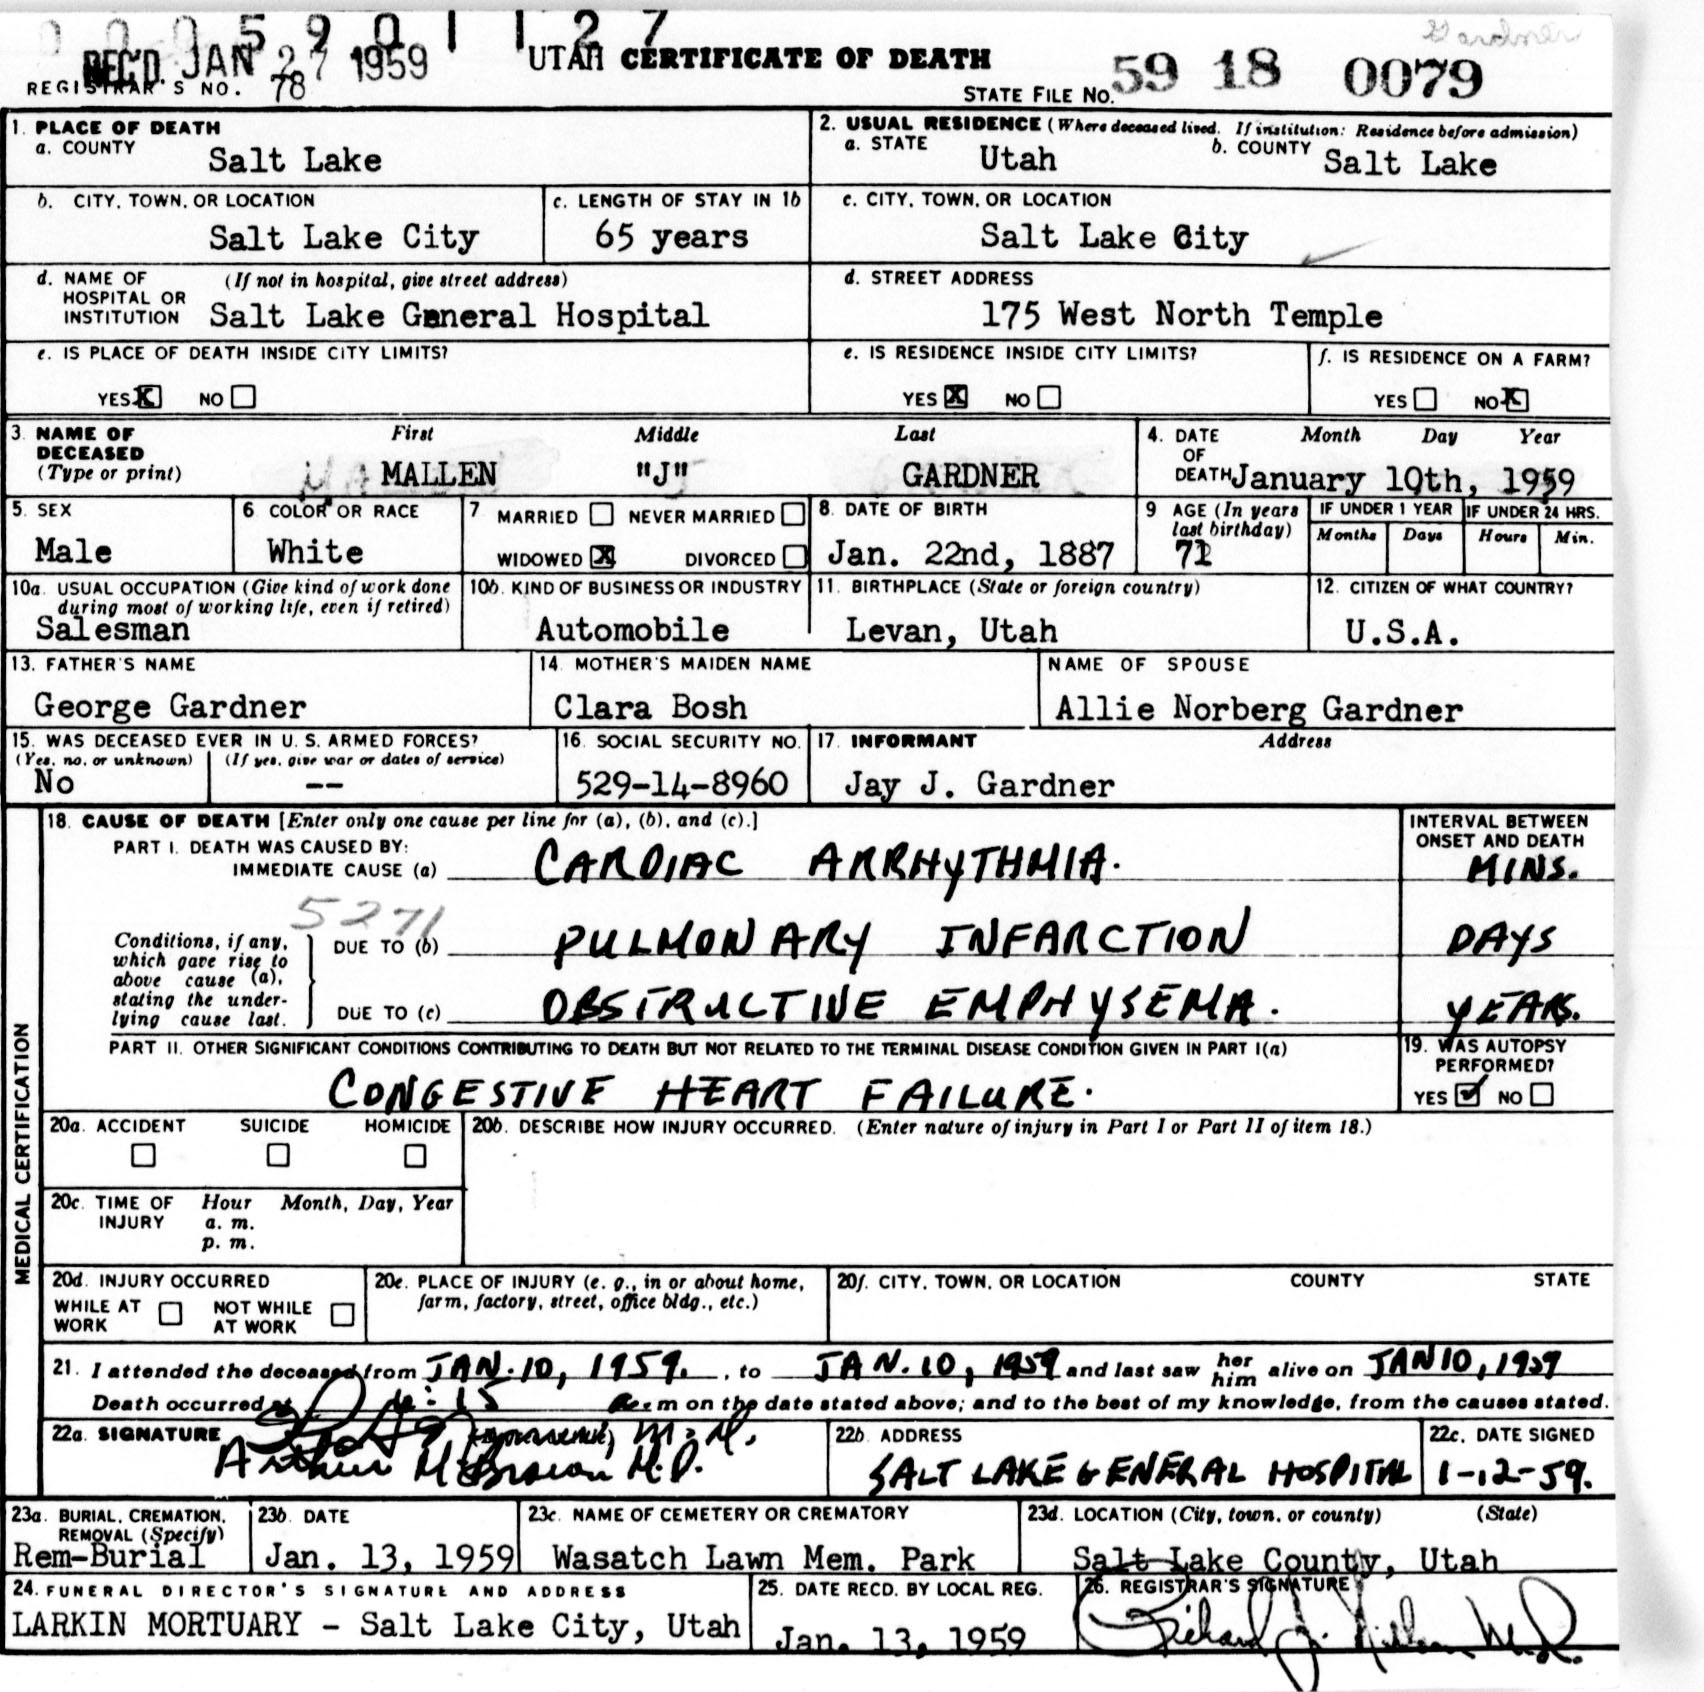 0 0 0 5 9 0 1 1 2 7
Gardner
REC'D. JAN 27 1959
UTAH CERTIFICATE OF DEATH
REGISTRAR'S NO. 78
STATE FILE NO. 59 18 0079
1. PLACE OF DEATH
a. COUNTY Salt Lake
2. USUAL RESIDENCE (Where deceased lived. If institution: Residence before admission)
a. STATE Utah b. COUNTY Salt Lake
b. CITY, TOWN, OR LOCATION Salt Lake City
c. LENGTH OF STAY IN 1b 65 years
c. CITY, TOWN, OR LOCATION Salt Lake City
d. NAME OF HOSPITAL OR INSTITUTION (If not in hospital, give street address)
Salt Lake General Hospital
d. STREET ADDRESS
175 West North Temple
e. IS PLACE OF DEATH INSIDE CITY LIMITS?
YES X NO
e. IS RESIDENCE INSIDE CITY LIMITS?
YES X NO
f. IS RESIDENCE ON A FARM?
YES NO X
3. NAME OF DECEASED (Type or print)
First Middle Last
MALLEN "J" GARDNER
4. DATE OF DEATH Month Day Year
January 10th, 1959
5. SEX Male
6. COLOR OR RACE White
7. MARRIED NEVER MARRIED
WIDOWED X DIVORCED
8. DATE OF BIRTH Jan. 22nd, 1887
9 AGE (In years last birthday) 71
IF UNDER 1 YEAR Months Days
IF UNDER 24 HRS. Hours Min.
10a. USUAL OCCUPATION (Give kind of work done during most of working life, even if retired)
Salesman
10b. KIND OF BUSINESS OR INDUSTRY
Automobile
11. BIRTHPLACE (State or foreign country)
Levan, Utah
12. CITIZEN OF WHAT COUNTRY?
U.S.A.
13. FATHER'S NAME
George Gardner
14. MOTHER'S MAIDEN NAME
Clara Bosh
NAME OF SPOUSE
Allie Norberg Gardner
15. WAS DECEASED EVER IN U. S. ARMED FORCES?
(Yes, no, or unknown) (If yes, give war or dates of service)
No --
16. SOCIAL SECURITY NO.
529-14-8960
17. INFORMANT Address
Jay J. Gardner
MEDICAL CERTIFICATION
18. CAUSE OF DEATH [Enter only one cause per line for (a), (b), and (c).]
INTERVAL BETWEEN ONSET AND DEATH
PART I. DEATH WAS CAUSED BY:
IMMEDIATE CAUSE (a) CARDIAC ARRHYTHMIA. MINS.
5271
Conditions, if any, which gave rise to above cause (a), stating the underlying cause last.
DUE TO (b) PULMONARY INFARCTION DAYS
DUE TO (c) OBSTRUCTIVE EMPHYSEMA. YEARS.
PART II. OTHER SIGNIFICANT CONDITIONS CONTRIBUTING TO DEATH BUT NOT RELATED TO THE TERMINAL DISEASE CONDITION GIVEN IN PART I(a)
CONGESTIVE HEART FAILURE.
19. WAS AUTOPSY PERFORMED?
YES ✓ NO
20a. ACCIDENT SUICIDE HOMICIDE
20b. DESCRIBE HOW INJURY OCCURRED. (Enter nature of injury in Part I or Part II of item 18.)
20c. TIME OF INJURY Hour Month, Day, Year
a. m.
p. m.
20d. INJURY OCCURRED
WHILE AT WORK NOT WHILE AT WORK
20e. PLACE OF INJURY (e. g., in or about home, farm, factory, street, office bldg., etc.)
20f. CITY, TOWN, OR LOCATION COUNTY STATE
21. I attended the deceased from JAN. 10, 1959. , to JAN. 10, 1959 and last saw her him alive on JAN 10, 1959
Death occurred at 6:15 m on the date stated above; and to the best of my knowledge, from the causes stated.
22a. SIGNATURE
M.D.
Arthur M.D.
22b. ADDRESS
SALT LAKE GENERAL HOSPITAL
22c. DATE SIGNED
1-12-59.
23a. BURIAL, CREMATION, REMOVAL (Specify)
Rem-Burial
23b. DATE
Jan. 13, 1959
23c. NAME OF CEMETERY OR CREMATORY
Wasatch Lawn Mem. Park
23d. LOCATION (City, town, or county) (State)
Salt Lake County, Utah
24. FUNERAL DIRECTOR'S SIGNATURE AND ADDRESS
LARKIN MORTUARY - Salt Lake City, Utah
25. DATE RECD. BY LOCAL REG.
Jan. 13, 1959
26. REGISTRAR'S SIGNATURE
Richard J. M.D.